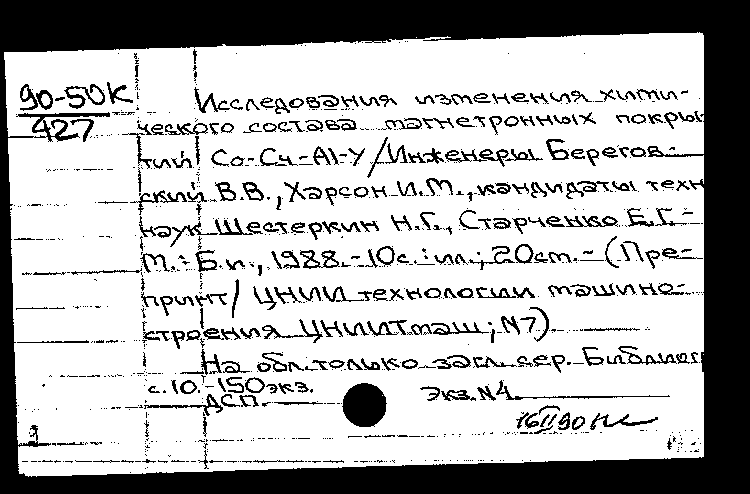 90-50К
427
Исследования изменения хими-
ческого состава магнетронных покры
тий Co-Cч-Al-Y/Инженеры Берегов-
ский В.В., Харсон И.М., кандидаты техн
наук Шестеркин Н.Г., Старченко Е.Г.-
М.: Б.и., 1988.-10с.: ил.; 20см.- (Пре-
принт/ ЦНИИ технологии машино-
строения ЦНИИТмаш; N7).
На обл. только загл. сер. Библиогр
с.10.-150экз.
ДСП. Экз.N4.
16II90
9